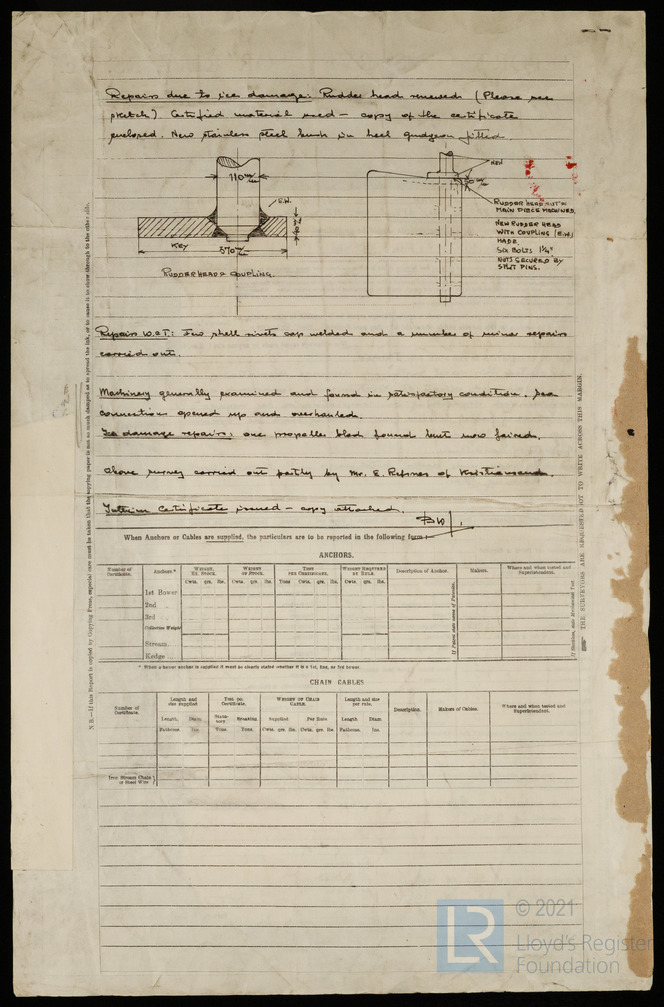 Repairs due to ice damage: Rudder head renewed (Please see
sketch) Certified material used – copy of the certificate
enclosed. New stainless steel bush in heel gudgeon fitted.
110 m/m
E.W.
40 m/m
KEY
370 m/m
RUDDERHEAD & COUPLING.
NEW
RUDDER HEAD CUT &
MAIN PIECE MACHINED.
NEW RUDDER HEAD
WITH COUPLING (E.W.)
MADE.
SIX BOLTS 1¼"
NUTS SECURED BY
SPLIT PINS.
Repairs W.&T: Few shell rivets cap welded and a number of minor repairs
carried out.
Machinery generally examined and found in satisfactory condition. Sea
connections opened up and overhauled.
Ice damage repairs: one propeller blade found bent now faired.
Above survey carried out partly by Mr. E. of Kristiansand.
Interim Certificate issued – copy attached.
When Anchors or Cables are supplied, the particulars are to be reported in the following form:—
ANCHORS.
Number of Certificate.
Anchors.*
WEIGHT, EX. STOCK.
WEIGHT OF STOCK.
TEST PER CERTIFICATE.
WEIGHT REQUIRED BY RULE.
Description of Anchor.
Makers.
Where and when tested and Superintendent.
Cwts. qrs. lbs.
Cwts. qrs. lbs.
Tons Cwts. qrs. lbs.
Cwts. qrs. lbs.
1st Bower
2nd
3rd
Collective Weight
Stream.
Kedge ...
If Patent state name of Patentee.
* When a bower anchor is supplied it must be clearly stated whether it is a 1st, 2nd, or 3rd bower.
CHAIN CABLES
Number of Certificate.
Length and size supplied
Test per Certificate.
WEIGHT OF CHAIN CABLE.
Length and size per rule.
Description.
Makers of Cables.
Where and when tested and Superintendent.
Length. Diam.
Statutory Breaking
Supplied Per Rule
Length Diam.
Fathoms. Ins.
Tons. Tons.
Cwts. qrs. lbs. Cwts. qrs. lbs.
Fathoms. Ins.
Iron Stream Chain or Steel Wire
N.B.—If this Report is copied by Copying Press, especial care must be taken that the copying paper is not so much damped as to spread the ink, or to cause it to show through to the other side.
THE SURVEYORS ARE REQUESTED NOT TO WRITE ACROSS THIS MARGIN.
LR
© 2021
Lloyd's Register
Foundation